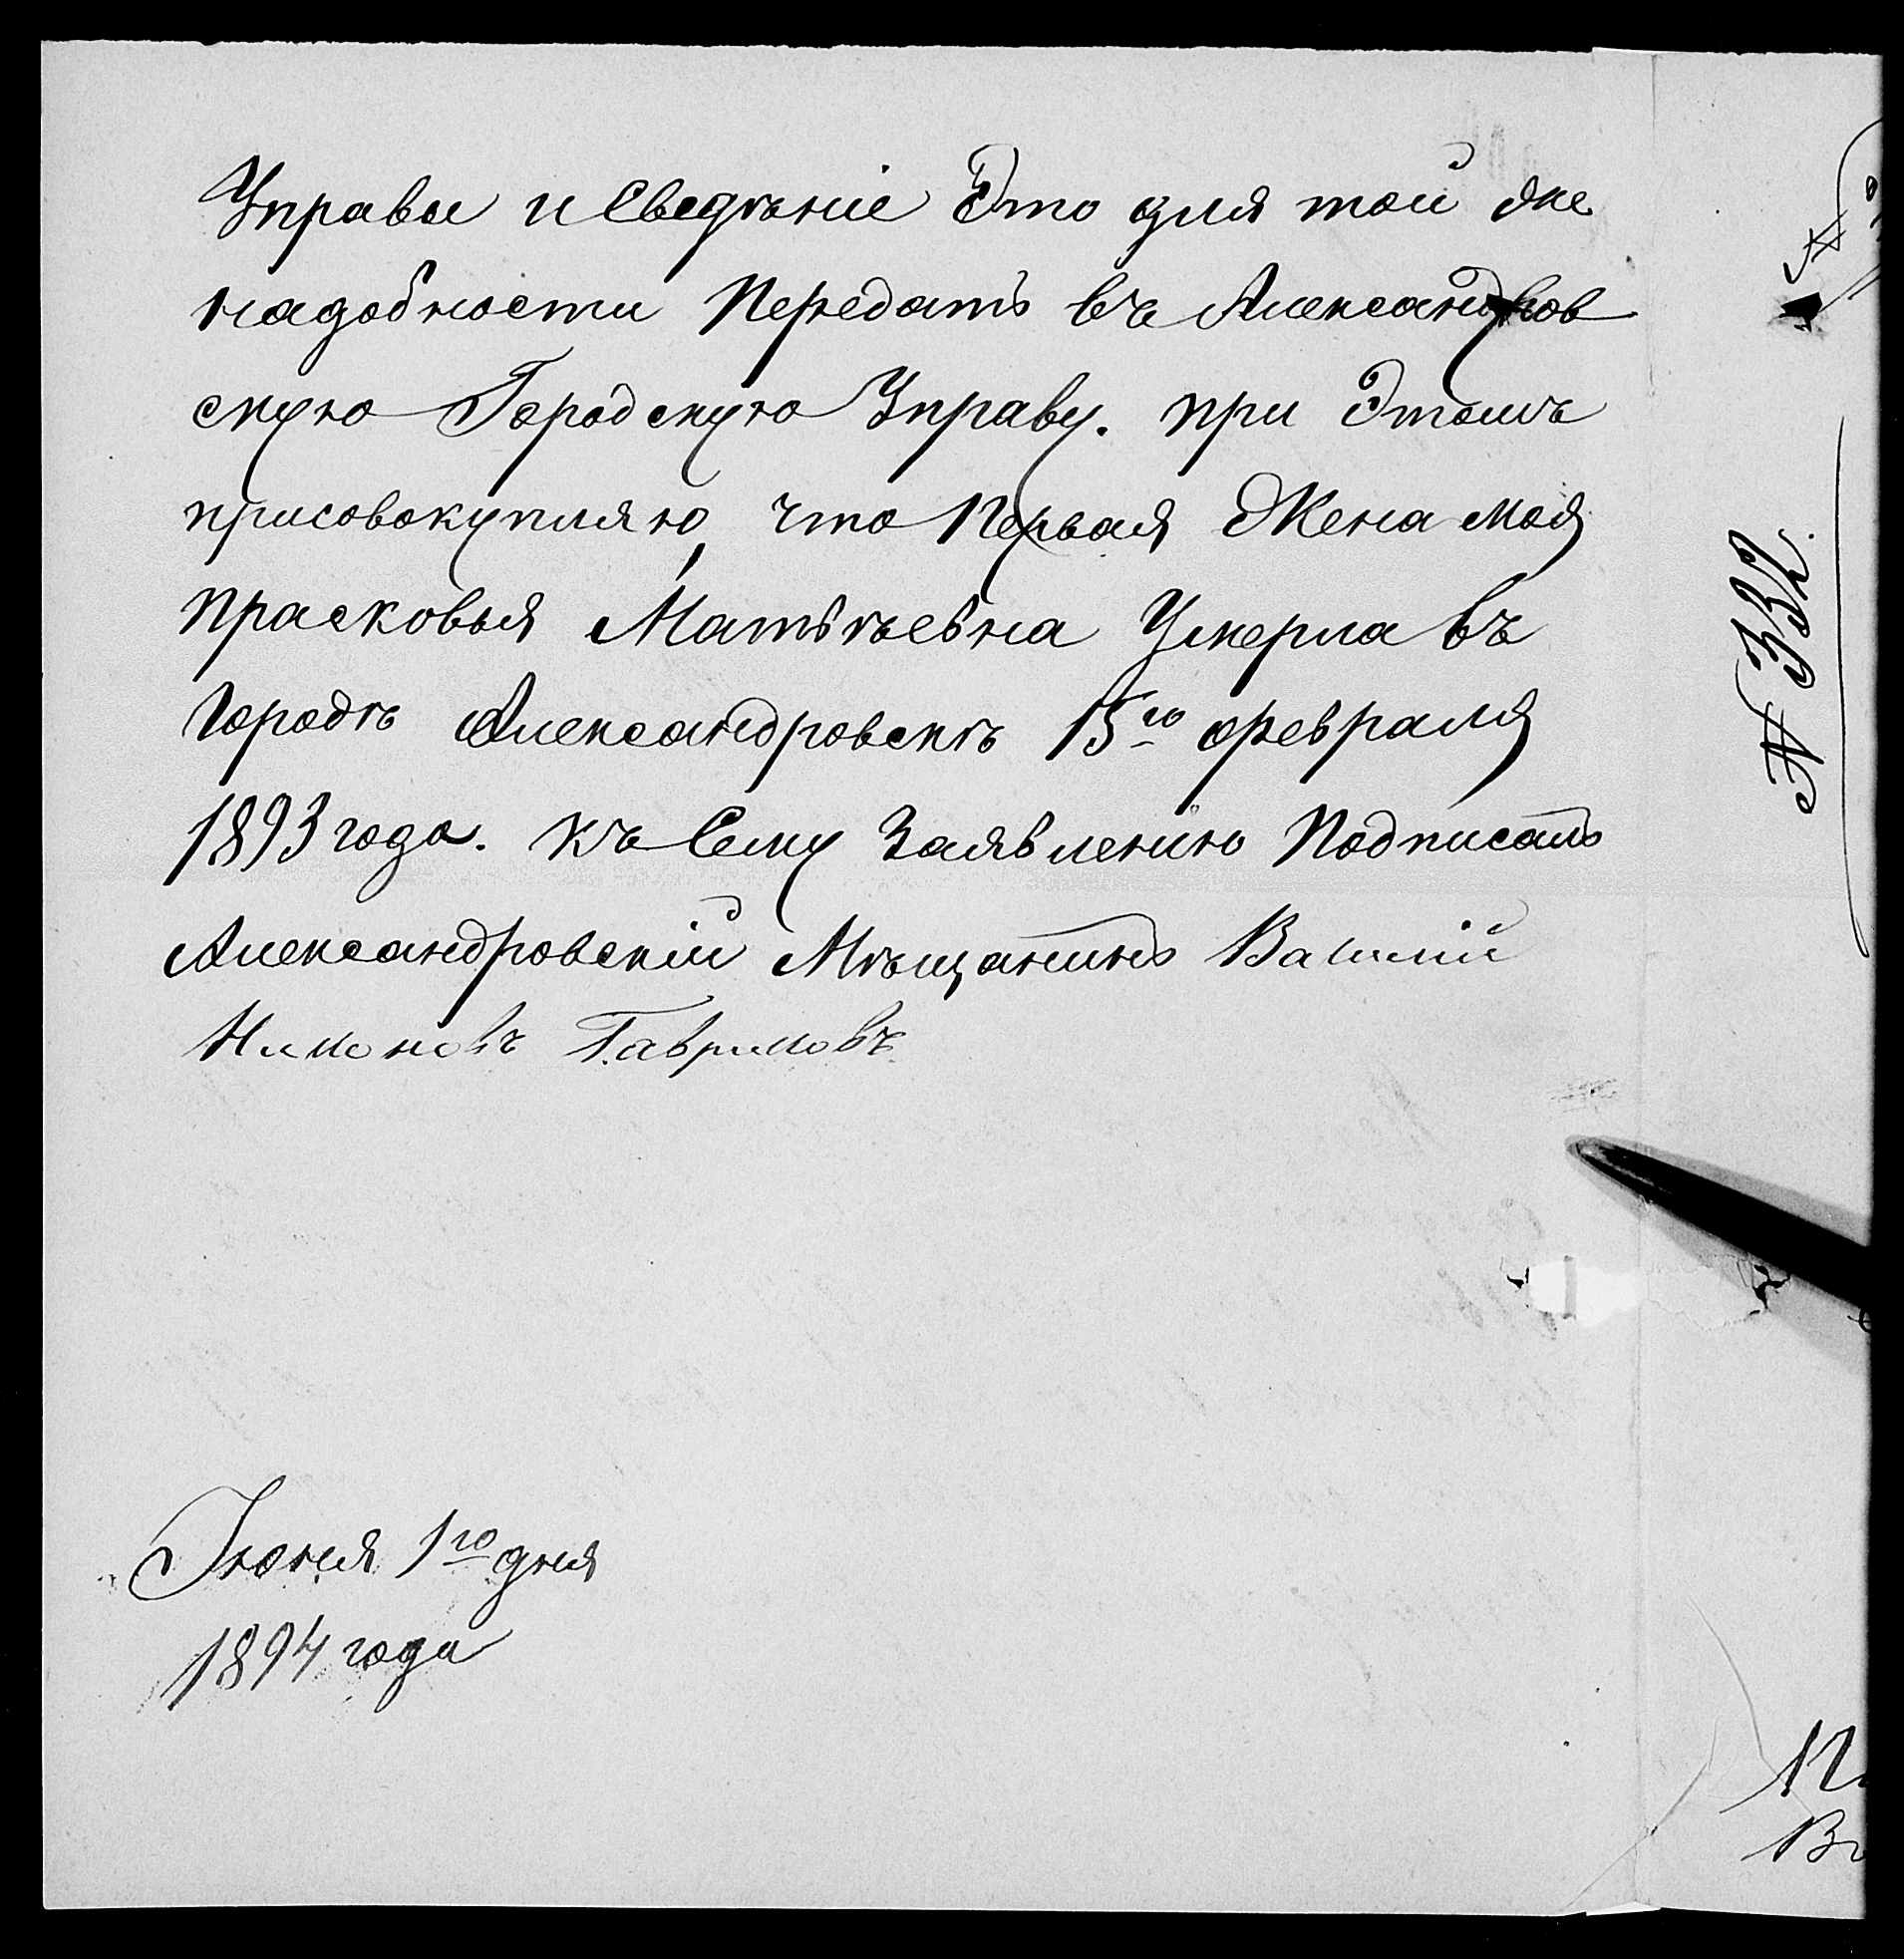 Управы и Сведѣніе Это для той же
надобности Передать въ Александров
скую Городскую Управу. при Этомъ
присовокупляю, что Первая Жена моя
Прасковья Матвѣевна Умерла въ
Городѣ Александровскѣ 15го февраля
1893 года. къ Сему Заявленію Подписалъ
Александровскій Мѣщанинъ Василій
Никоновъ Гавриловъ
Іюня 1го дня
1894 года
№ 332.